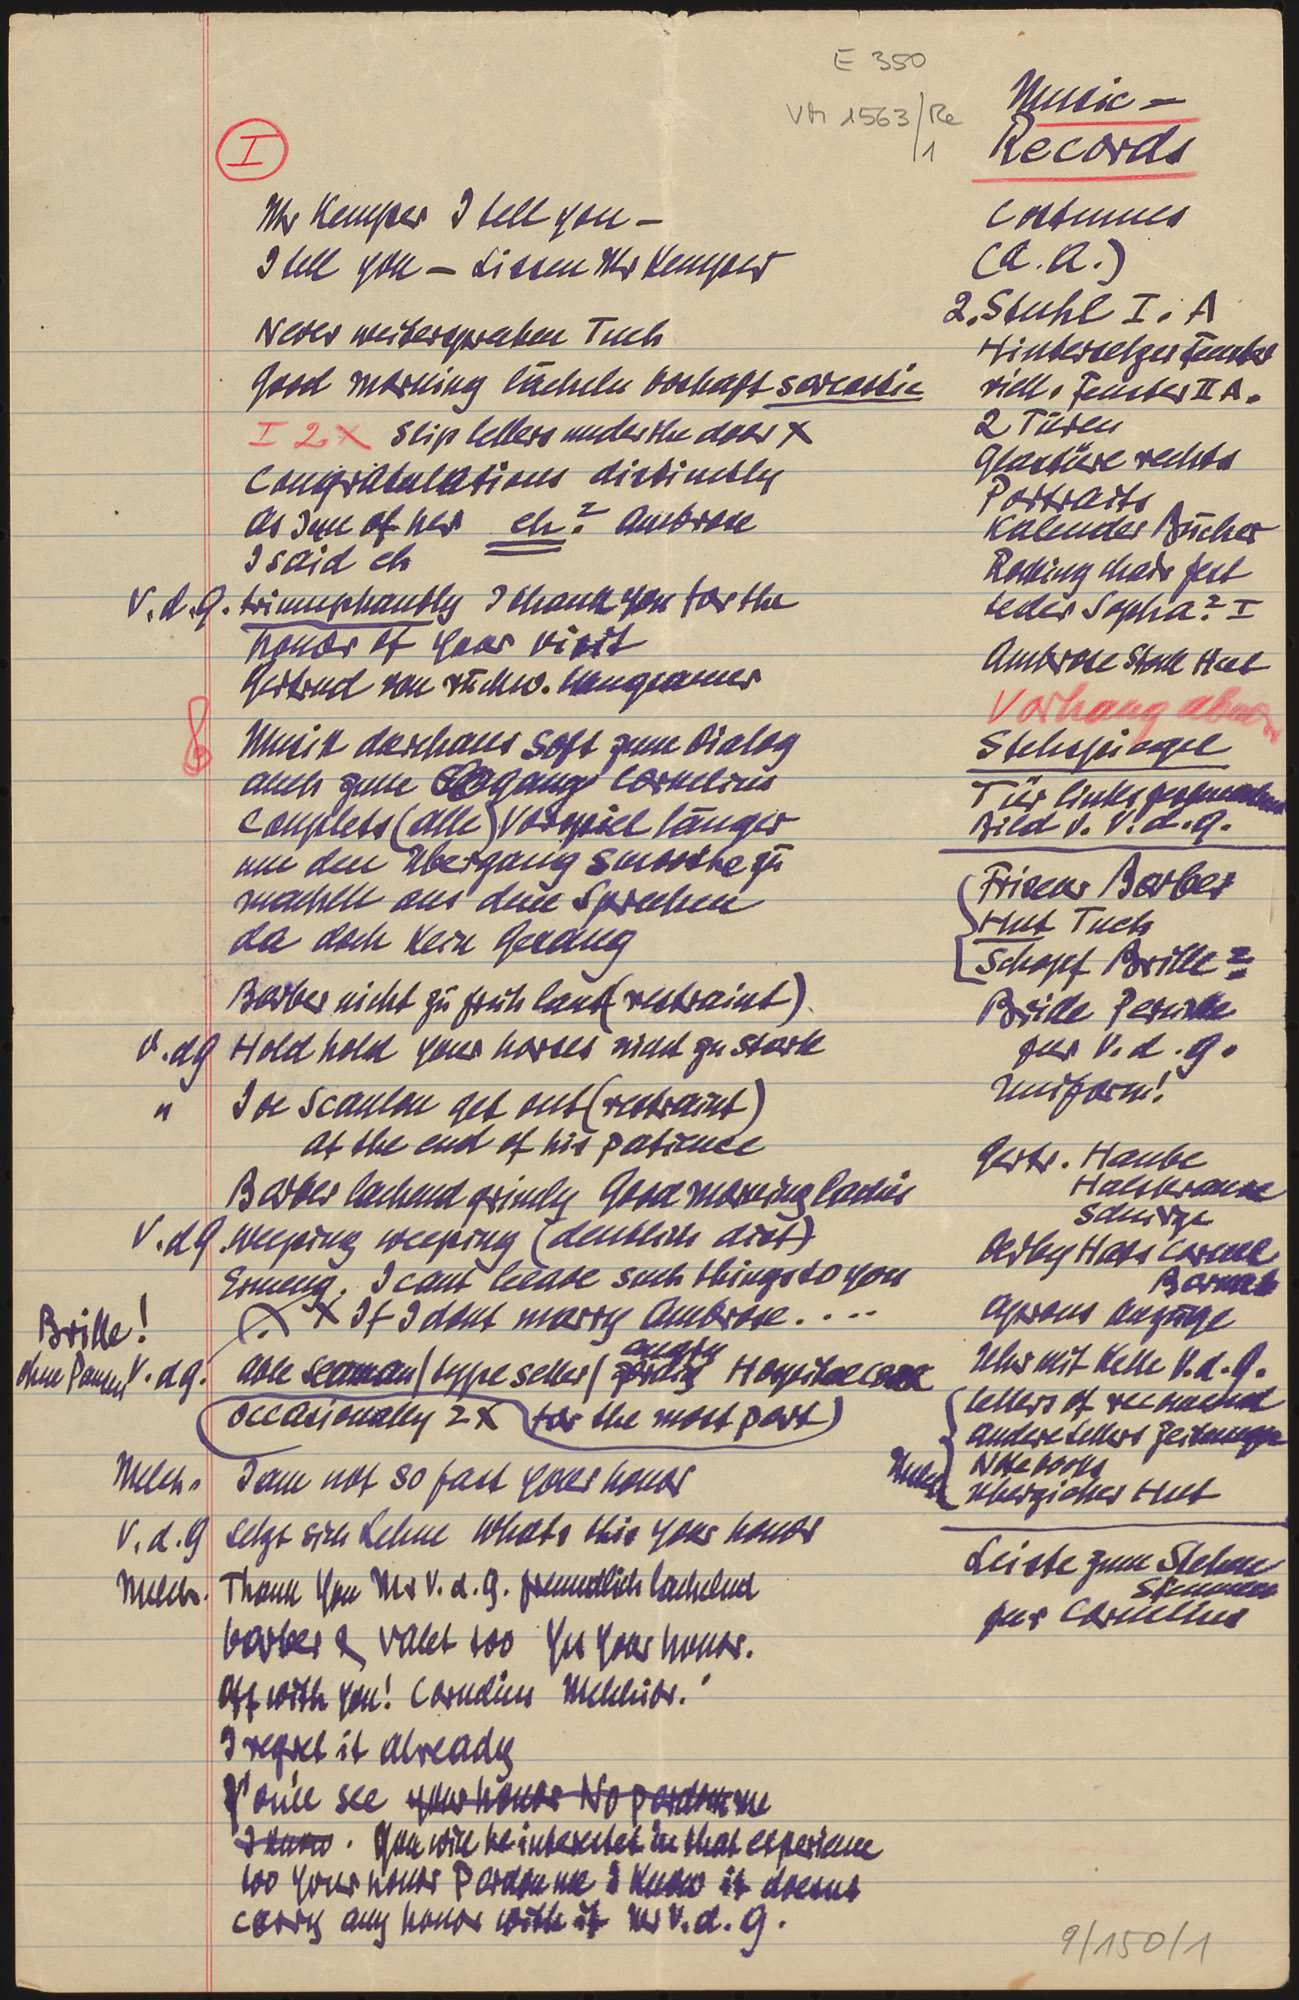 E 350
VM 1563/Re
/1
I
Mr Kemper I tell you –
I tell you – Lissen Mr Kemper
Neves weitersprechen Tuch
Good morning lächeln boshaft sarcastic
I 2 X Slip letters under the door X
Congratulations distinctly
As I am of her eh? Ambrose
I said eh
V.d.G. triumphantly I thank you for the
honor of your visit
Gertrud von rückw. langsamer
Musik durchaus soft zum Dialog
auch zum gang Cornelius
Couplets (alle) Vorspiel länger
um den Übergang smoothe zu
machen aus dem Sprechen
da doch kein Gesang
Barber nicht zu früh laut (restraint)
V.dG Hold hold your horses nicht zu stark
" Joe Scanlon get out (restraint)
at the end of his patience
Barber lachend grimly Good morning ladies
V.dG. weeping weeping (deutlich dist)
Ermeng. I cant lease such things to you
X If I dont marry Ambrose . . . .
Brille!
angry
ohne V.dG. able seaman / type seller / Hospital
(occasionally 2 X for the most part)
Melch. I am not so fast your honor
V.d.G setzt sich Lehne Whats this your honor
Melch. Thank you Mr V.d.G. freundlich lächelnd
barber & valet too Yes your honor.
Off with you! Cornelius Melchior.
I regret it already
You'll see your honor No pardon me
I know. You will be interestet in that experience
too your honor Pardon me I know it doesnt
carry any honor with it Mr V.d.G.
Music –
Records
Costumes
(A.A.)
2. Stuhl I. A
Hintersetzer Fenster
viell. Fenster II A.
2 Türen
Glastüre rechts
Portraits
Kalender Bücher
Rocking chair fest
Leder Sopha? I
Ambrose Stock Hut
Vorhang
Stehspiegel
Tür links
Bild v. V.d.G.
Friseur Barber
Hut Tuch
Schopf Brille?
Bride Perücke
für V.d.G.
Uniform!
Gertr. Haube
Halskrause
Schürze
Derby Hats Cornel
Barnab
Aprons Anzüge
Uhr mit Kette V.d.G.
letters of recomend
andere Letters Zeitungen
Melch Notebooks
Überzieher Hut
Leiste zum Stehen
Stimmen
für Cornelius
9/150/1